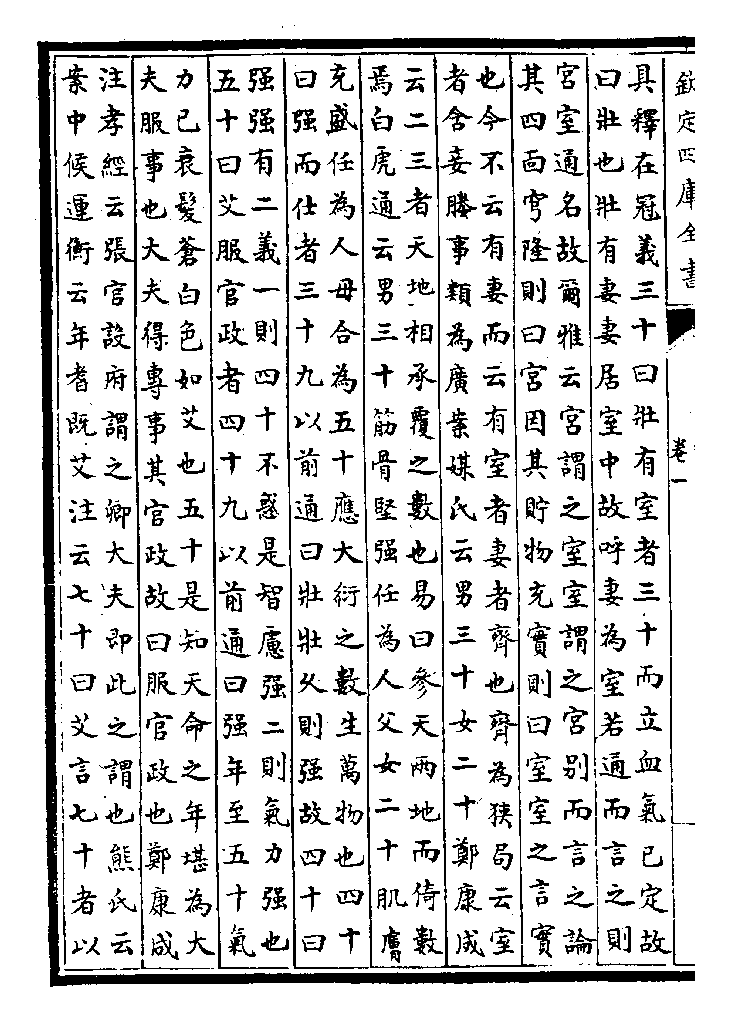 欽定四庫全書
卷一
具釋在冠義三十曰壯有室者三十而立血氣已定故
曰壯也壯有妻妻居室中故呼妻為室若通而言之則
宮室通名故爾雅云宮謂之室室謂之宮别而言之論
其四面穹隆則曰宮因其貯物充實則曰室室之言實
也今不云有妻而云有室者妻者齊也齊為狹局云室
者含妾媵事類為廣案媒氏云男三十女二十鄭康成
云二三者天地相承覆之數也易曰參天兩地而倚數
焉白虎通云男三十筋骨堅强任為人父女二十肌膚
充盛任為人母合為五十應大衍之數生萬物也四十
曰强而仕者三十九以前通曰壯壯久則强故四十曰
强强有二義一則四十不惑是智慮强二則氣力强也
五十曰艾服官政者四十九以前通曰强年至五十氣
力已衰髮蒼白色如艾也五十是知天命之年堪為大
夫服事也大夫得專事其官政故曰服官政也鄭康成
注孝經云張官設府謂之卿大夫即此之謂也熊氏云
案中候運衡云年耆既艾注云七十曰艾言七十者以